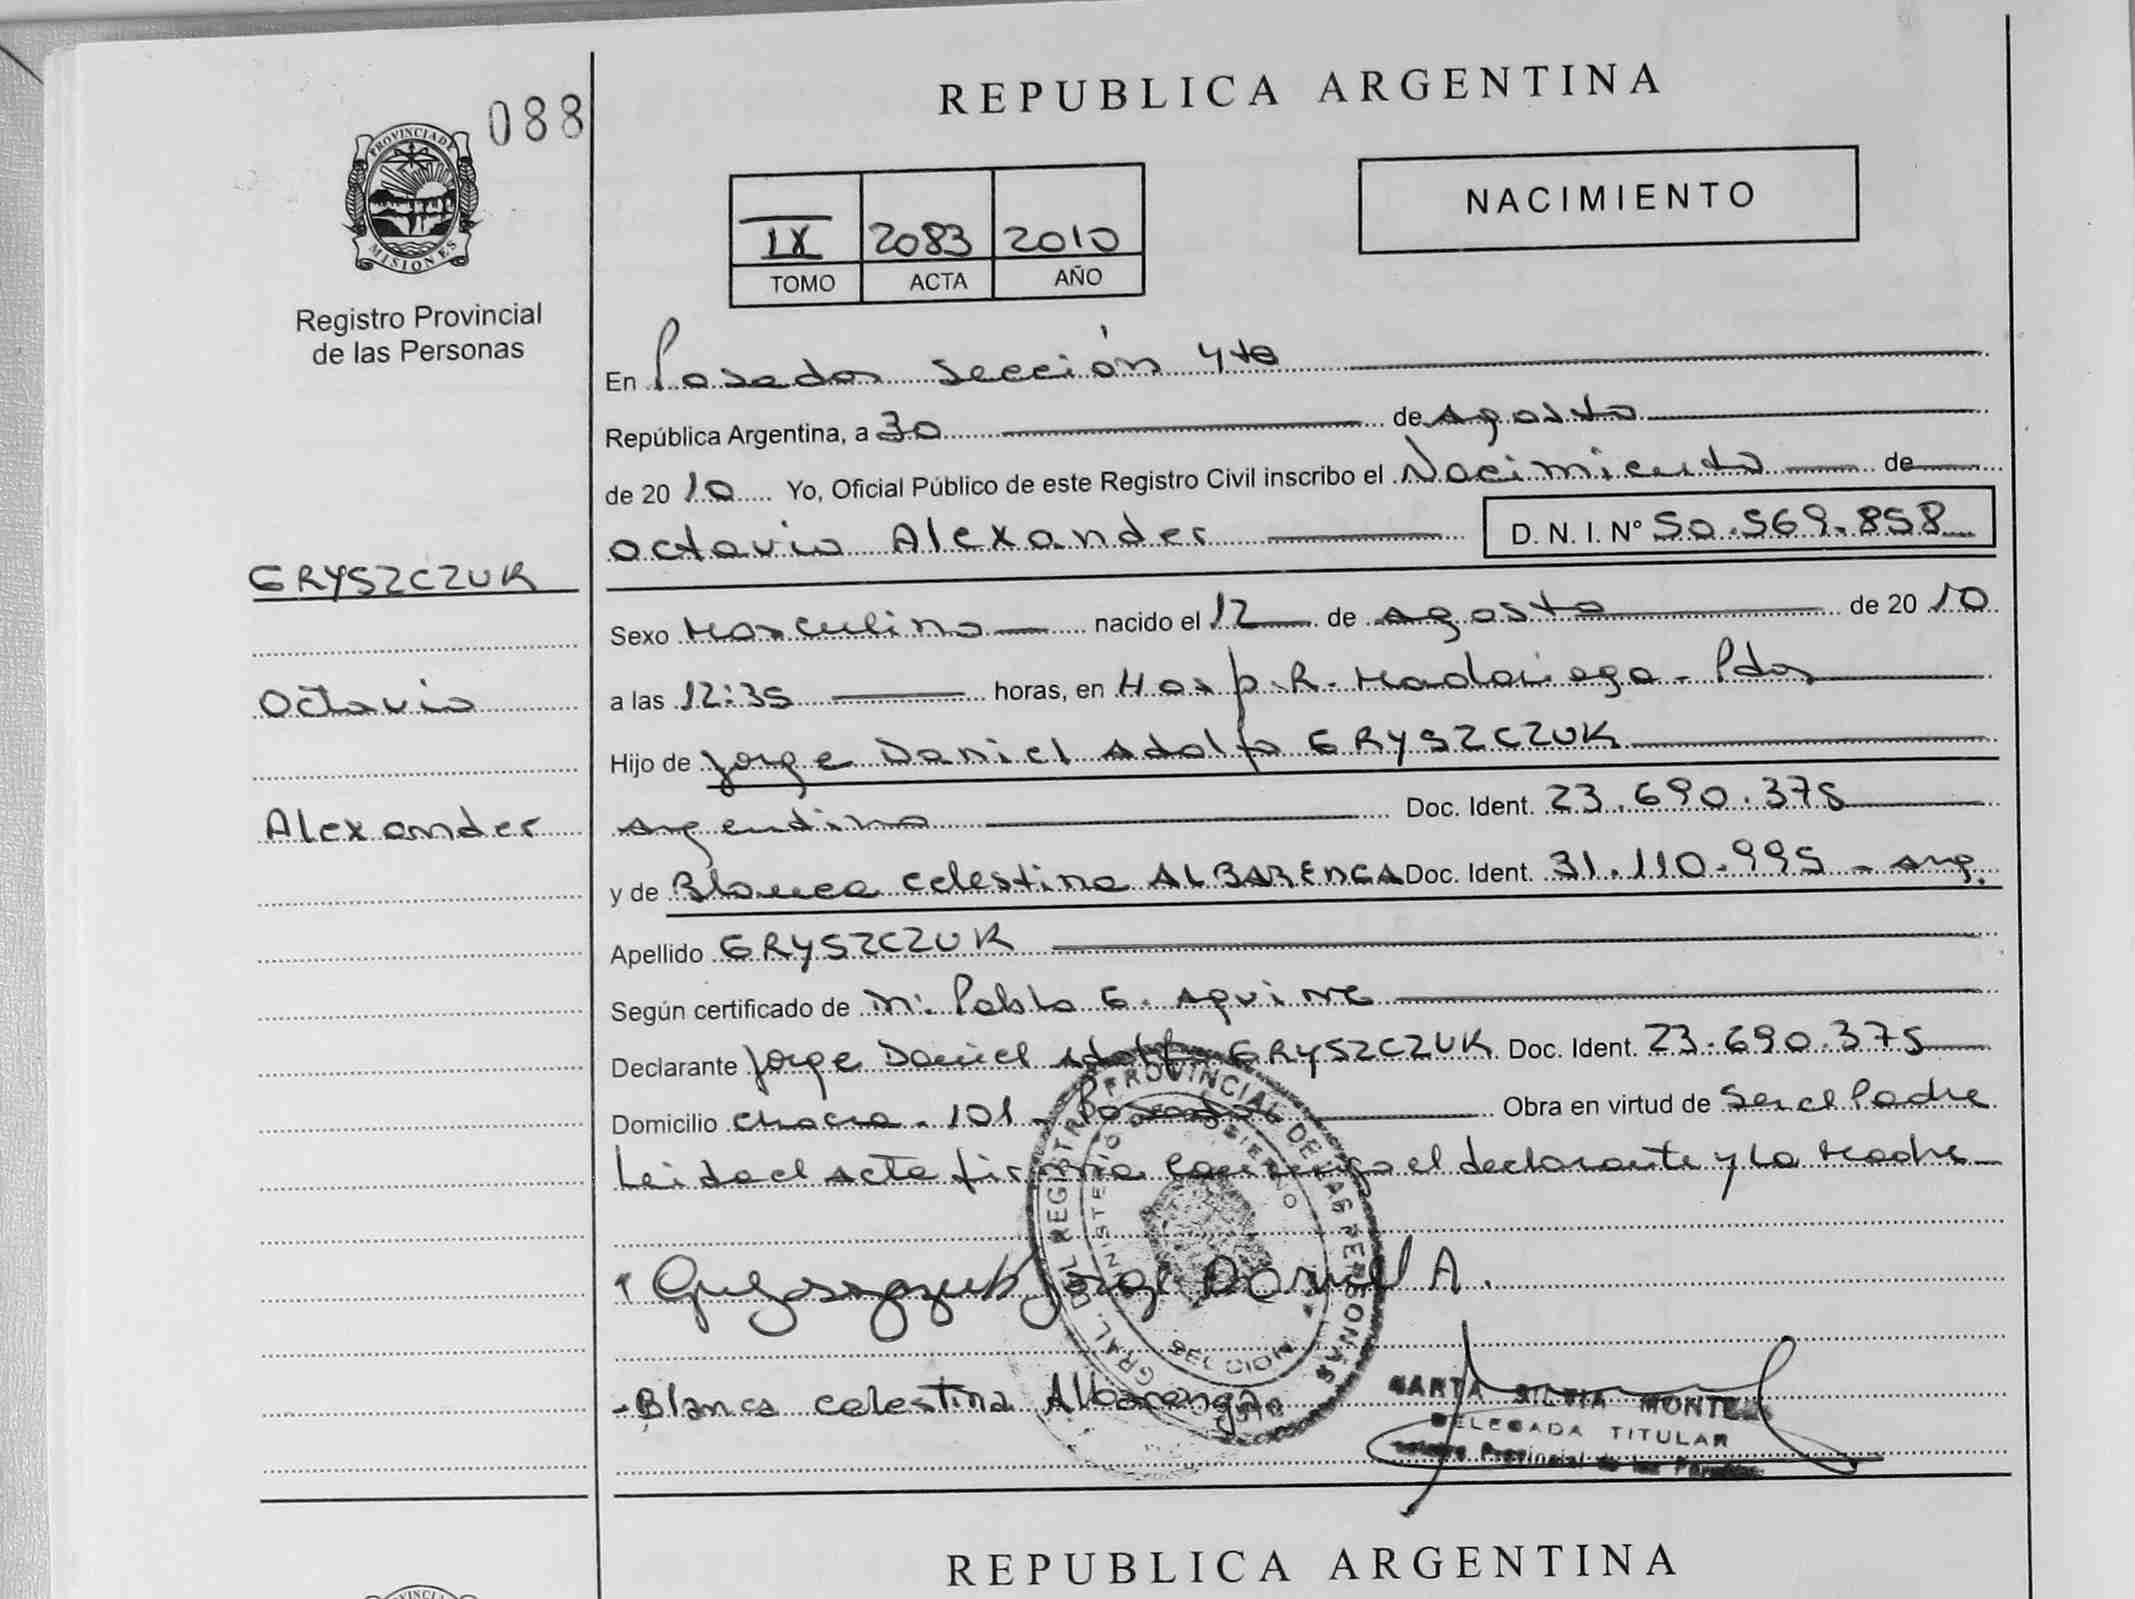 REPUBLICA ARGENTINA
088
PROVINCIA DE
MISIONES
Registro Provincial
de las Personas
NACIMIENTO
IX 2083 2010
TOMO ACTA AÑO
En Posadas Sección 4ta
República Argentina, a 30 de Agosto
de 2010 Yo, Oficial Público de este Registro Civil inscribo el Nacimiento de
Octavio Alexander D. N. I. Nº 50.569.858
GRYSZCZUK
Octavio
Alexander
Sexo Masculino nacido el 12 de Agosto de 2010
a las 12:35 horas, en Hosp. R. Madariaga - Pdas
Hijo de Jorge Daniel Adolfo GRYSZCZUK
Argentino Doc. Ident. 23.690.375
y de Blanca Celestina ALBARENGA Doc. Ident. 31.110.995 - Arg.
Apellido GRYSZCZUK
Según certificado de M. Pablo G. Aquino
Declarante Jorge Daniel Adolfo GRYSZCZUK Doc. Ident. 23.690.375
Domicilio Chacra - 101 - Posadas Obra en virtud de Ser el Padre
Leida el acta firma conmigo el declarante y la Madre
GRAL. DEL REGISTRO PROVINCIAL DE LAS PERSONAS
SECCION
Jorge Daniel A.
- Blanca celestina Albarenga
MARTA SILVIA MONTIEL
DELEGADA TITULAR
Registro Provincial de las Personas
REPUBLICA ARGENTINA